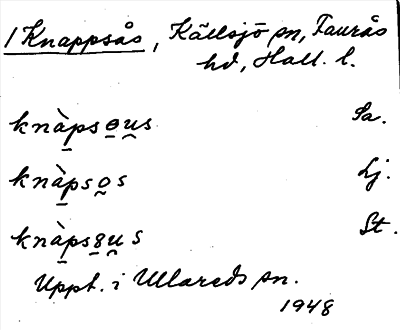 1 Knappsås, Källsjö sn, Faurås
hd, Hall. l.
knàpsɵu̯s Sa.
knàpso̯s Lj.
knàps8u̯s St.
Uppt. i Ullareds sn.
1948